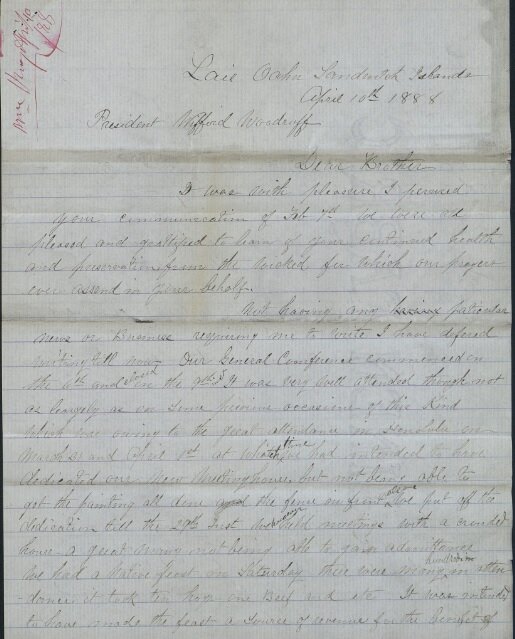 Laie Oahu Sandwich Islands
April 10th 1888
President Wilford Woodruff
Dear Brother
It was with pleasure I perused
your communication of Feb 7th We were all
pleased and gratified to learn of your continued health
and preservation from the wicked for which our prayers
ever assend in your behalf.
Not having any particular
news or Business requiring me to write I have defered
writing till now Our General Conference commenced on
the 6th and closed on the It was very well attended though not
as largely as on some previous occasions of this kind
which was owing to the great attendance in Honolulu on
March 31 and April 1st at which time we had intended to have
dedicated our New Meetinghouse, but not being able to
get the painting all done the fence in front We put off the
dedication till the 29th Inst We however held meetings with a crowded
house a great many not being able to gain admittance
We had a Native feast on Saturday there were many in atten
-dance, it took ten hogs one Beef and etc It was intended
to have made the feast a source of revenue for the benefit of